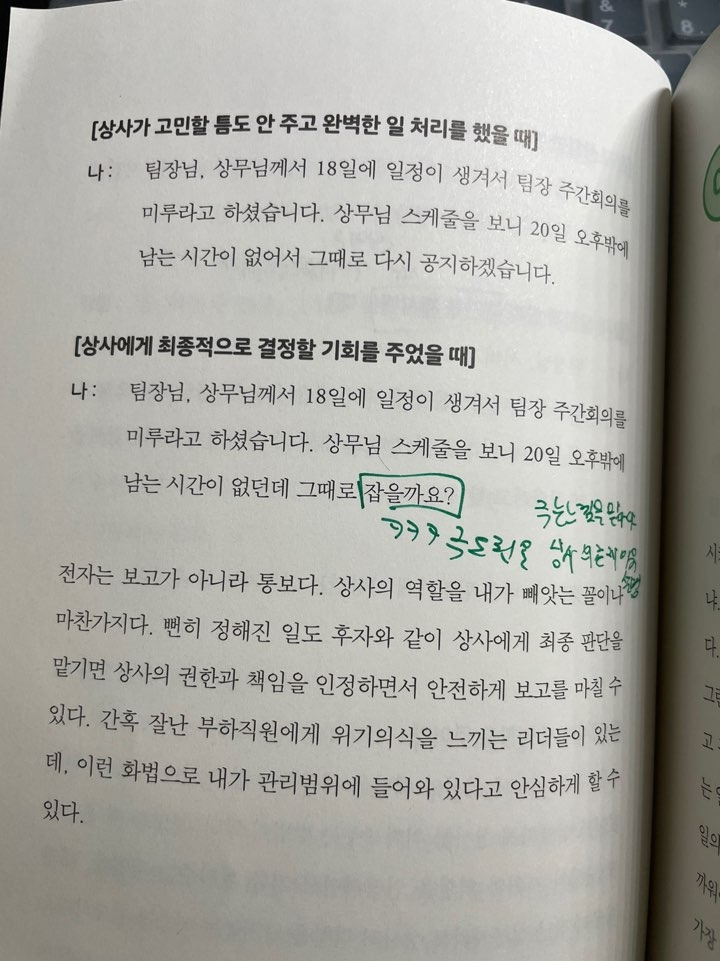 [상사가 고민할 틈도 안 주고 완벽한 일 처리를 했을 때]
나: 팀장님, 상무님께서 18일에 일정이 생겨서 팀장 주간회의를
미루라고 하셨습니다. 상무님 스케줄을 보니 20일 오후밖에
남는 시간이 없어서 그때로 다시 공지하겠습니다.
[상사에게 최종적으로 결정할 기회를 주었을 때]
나: 팀장님, 상무님께서 18일에 일정이 생겨서 팀장 주간회의를
미루라고 하셨습니다. 상무님 스케줄을 보니 20일 오후밖에
남는 시간이 없던데 그때로 잡을까요?
ㅋㅋㅋ
상사
전자는 보고가 아니라 통보다. 상사의 역할을 내가 빼앗는 꼴이나
마찬가지다. 뻔히 정해진 일도 후자와 같이 상사에게 최종 판단을
맡기면 상사의 권한과 책임을 인정하면서 안전하게 보고를 마칠 수
있다. 간혹 잘난 부하직원에게 위기의식을 느끼는 리더들이 있는
데, 이런 화법으로 내가 관리범위에 들어와 있다고 안심하게 할 수
있다.
다.
고
일의
가장